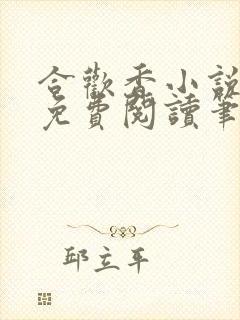 合歡香小說
免費閱讀筆
邱立平